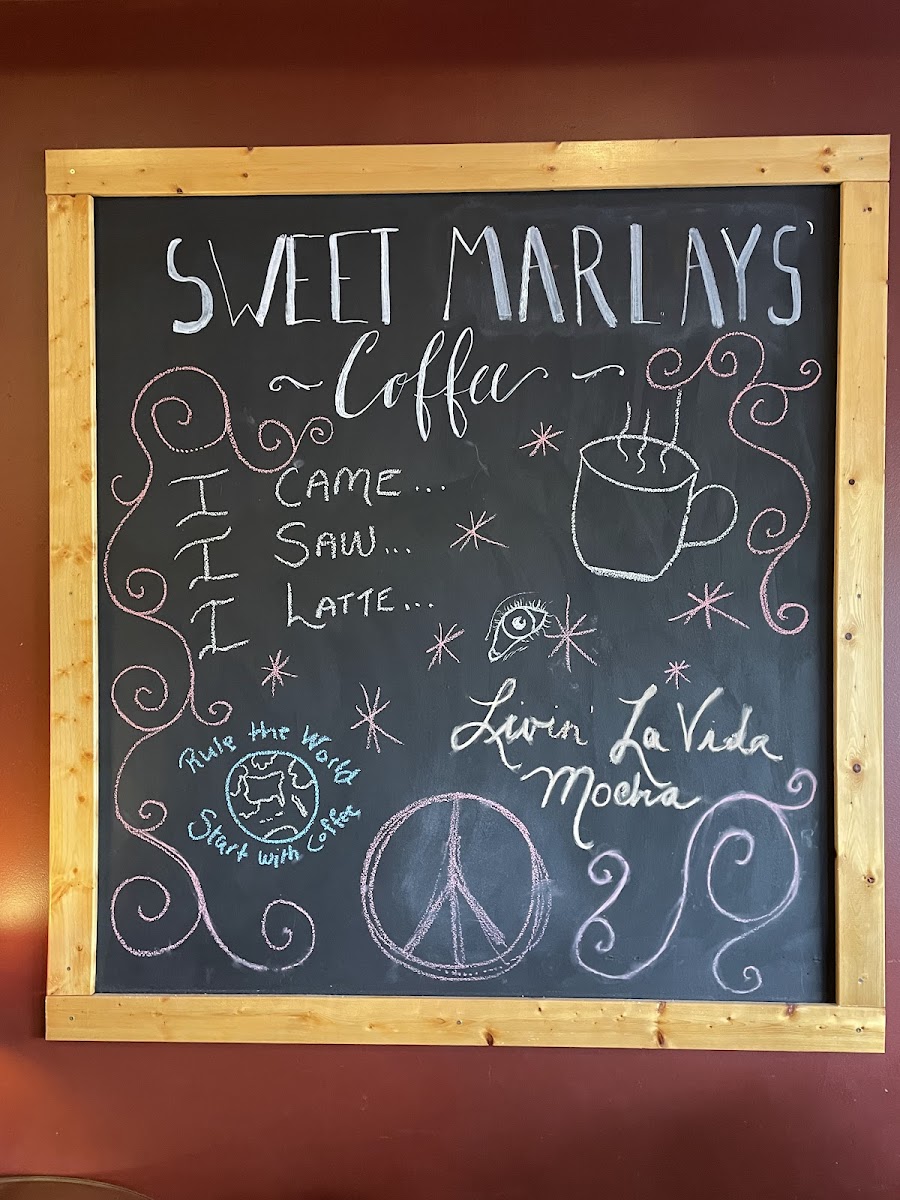 SWEET MARLAYS'
~ Coffee ~
I CAME...
I SAW...
I LATTE...
Livin' La Vida
Mocha
Rule the World
Start with Coffee